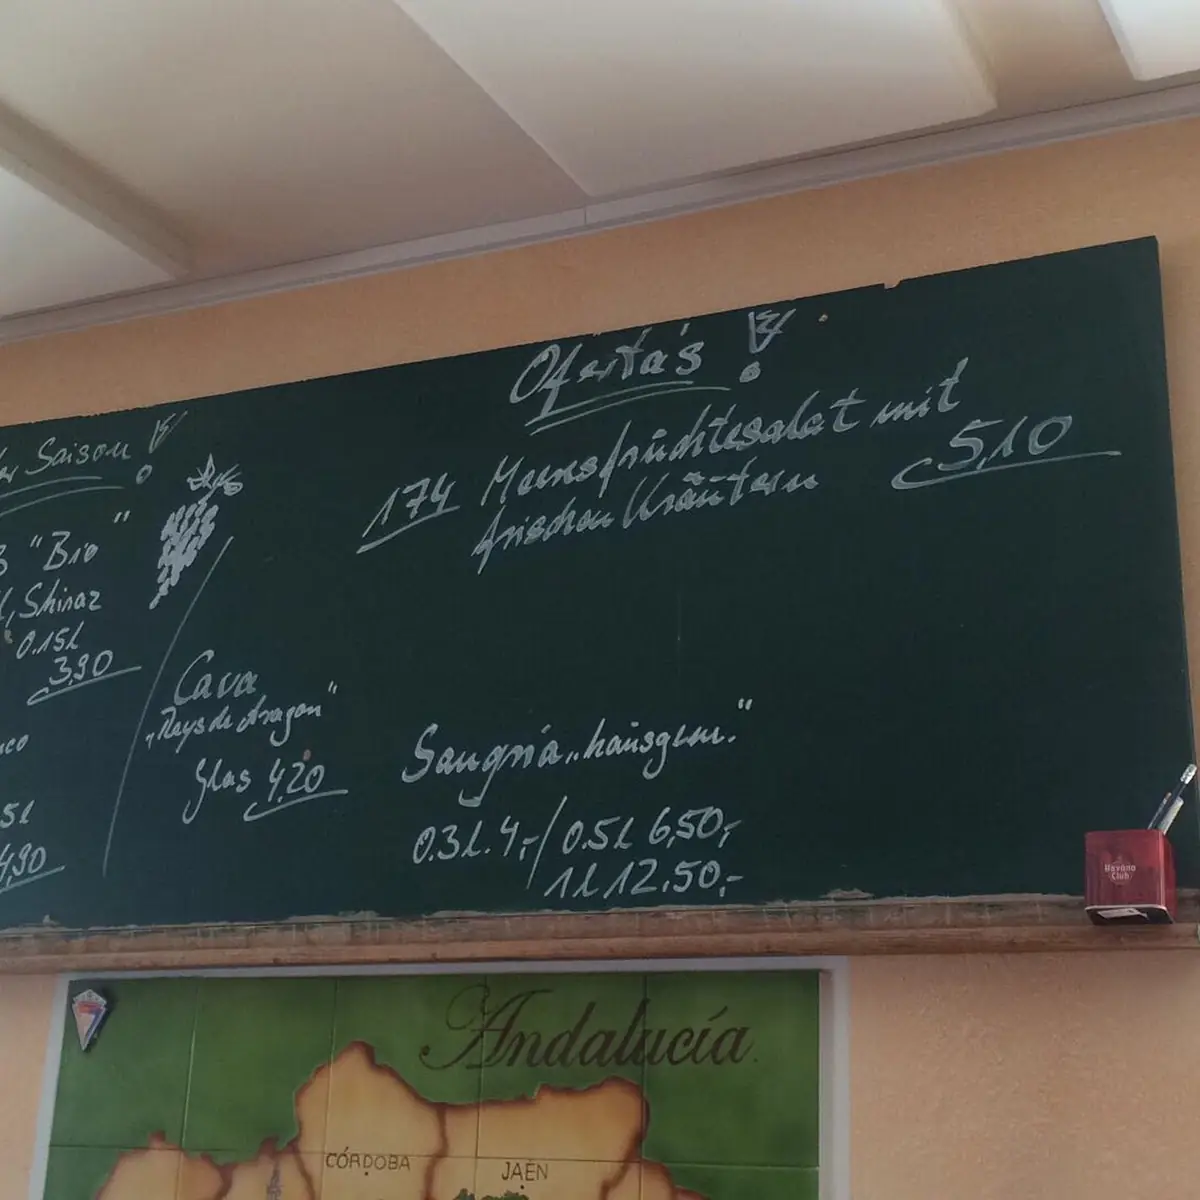 Oferta's !
174 Meeresfrüchtesalat mit
frischen Kräutern
5,10
Saison !
"Bio"
Shiraz
0.15l
3,90
5l
4,90
Cava
"Reys de Aragon"
Glas 4,20
Sangria "hausgem."
0.3l. 4,-/ 0.5l 6,50,-
1l 12,50,-
Havana
Club
Andalucía
CÓRDOBA
JAÉN